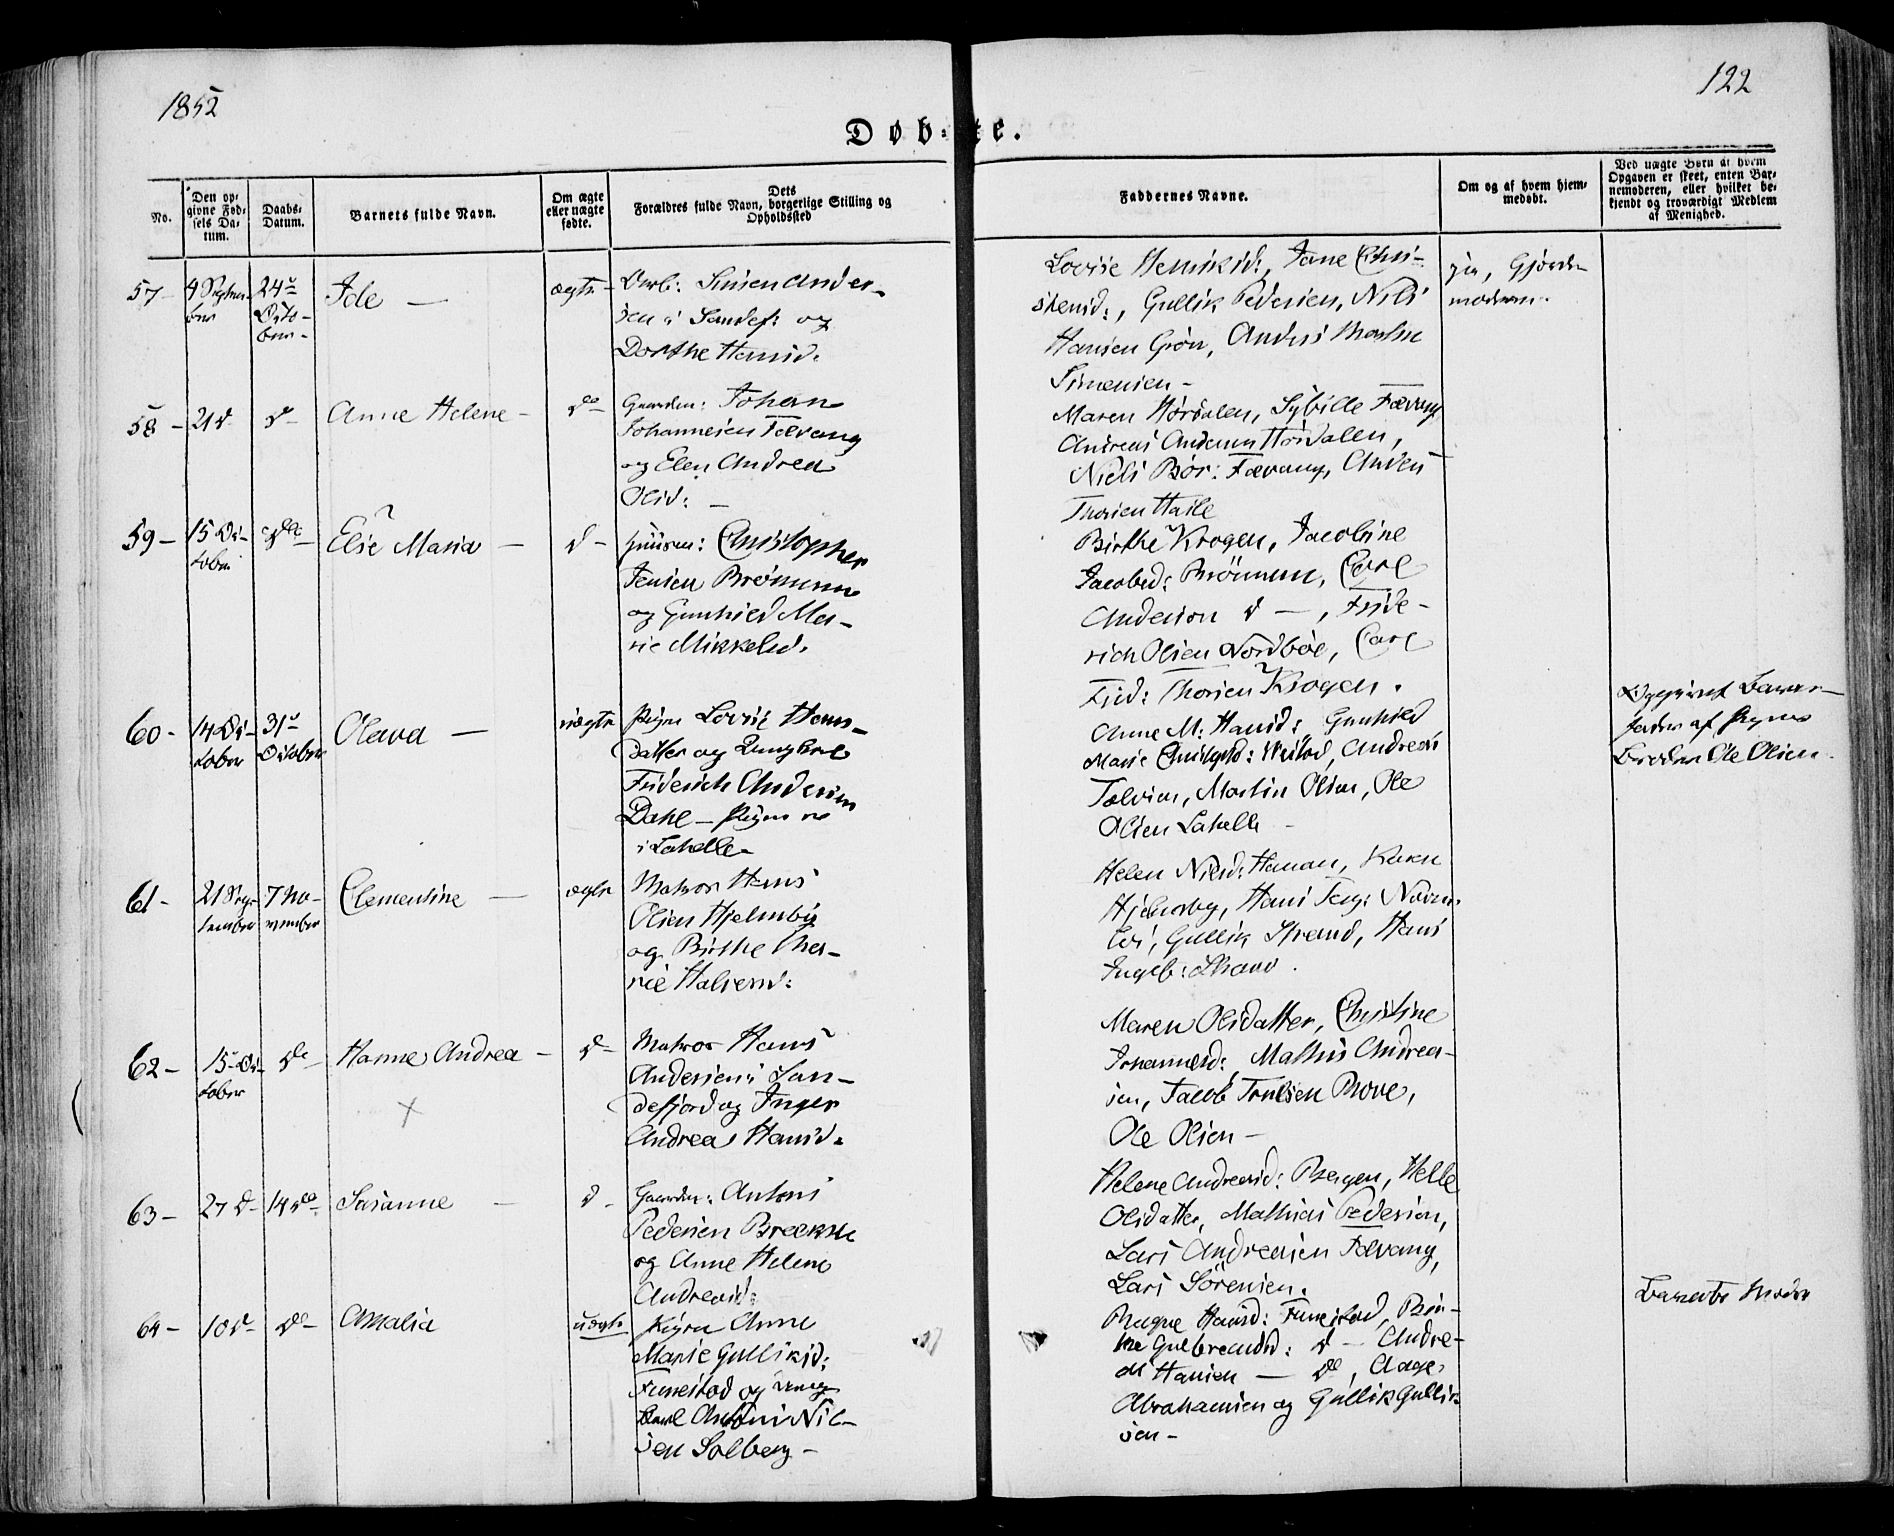 1852
122
Døb-te.
No.
Den op-
givne Fød-
sels Da-
tum.
Daabs-
Datum.
Barnets fulde Navn.
Om ægte
eller uægte
fødte.
Dets
Forældres fulde Navn, borgerlige Stilling og
Opholdssted
Faddernes Navne.
Om og af hvem hjem-
medøbt.
Ved uægte Børn af hvem
Opgaven er skeet, enten Bar-
nemoderen, eller hvilket be-
kjendt og troværdigt Medlem
af Menighed.
57-
4 Septem-
ber
24de
Octo-
ber-
Ide —
ægte-
Simen Ander-
sen i Sandef: og
Dorthe Hansd.
Lovise Henrikd:, Jane Chri-
stensd:, Gullik Pedersen, Nils
Hansen Grøn, Anders
Simensen-
ja, Gjorde-
moderen.
58-
21 d
do-
Anne Helene-
do-
Gaardm: Johan
Johannesen Fævang
og Elen Andrea
Olsd: -
Maren Hørdalen, Sybille Fævang
Andreas Andersen Hørdalen,
Niels Bor: Fævang, Anders
Thorsen Hasle
59-
15 Oc-
tober
do-
Else Maria —
d-
Huusm: Christopher
Jensen Brønnum
og Gunhild Ma-
rie Mikkelsd.
Birthe Krogen, Jacobine
Jacobsd: Brønnum, Carl
Anderson d —, Fride-
rich Olsen Nordbøe, Carl
Frid: Thorsen Krogen.
60-
14 Oc-
tober
31te
October
Olava —
uægte
Pigen Lovise Hans-
datter og Ungkarl
Friderich Andersen
Dahl — Pigen
i Lahelle-
Anne M: Hansd: Gunhild
Marie Andreas
Martin Olsen, Ole
Olsen Lahelle -
Opgivet Barne-
fader af Pigens
Broder Ole Olsen.
61-
21 Sep-
tember
7 No-
vember
Clementine —
ægte
Matros Hans
Olsen Hjelmby
og Birthe Ma-
rie Halvorsd:
Helen Nilsd: Karen
Hjelmby, Hans
Gullik Strand, Hans
Ingeb: Strand.
62-
15 Oc-
tober
do-
Hanne Andrea-
d-
Matros Hans
Andersen i San-
defjord og Inger
Andrea Hansd.
Maren Olsdatter, Christine
Johannesd: Mathis Andrea-
sen, Jacob Trulsen Prove,
Ole Olsen-
63-
27 d-
14 do-
Susanne —
d-
Gaardm: Antoni
Pedersen Brække
og Anne Helene
Andreasd:
Helene Andreasd: Bergen, Helle
Olsdatter, Mathias Pedersen,
Lars Andreasen Fævang,
Lars Sørensen.
64-
10 d-
do-
Amalia
uægte
Pigen Anne
Marie Gulliksd:
Furustad og Ungk
Karl Antoni Nil-
sen Solberg-
Hansd: Furustad,
Gulbrandsd: d — Andre-
as Hansen — do, Aage
Abrahamsen og Gullik Gullik-
sen-
Barnets Moder